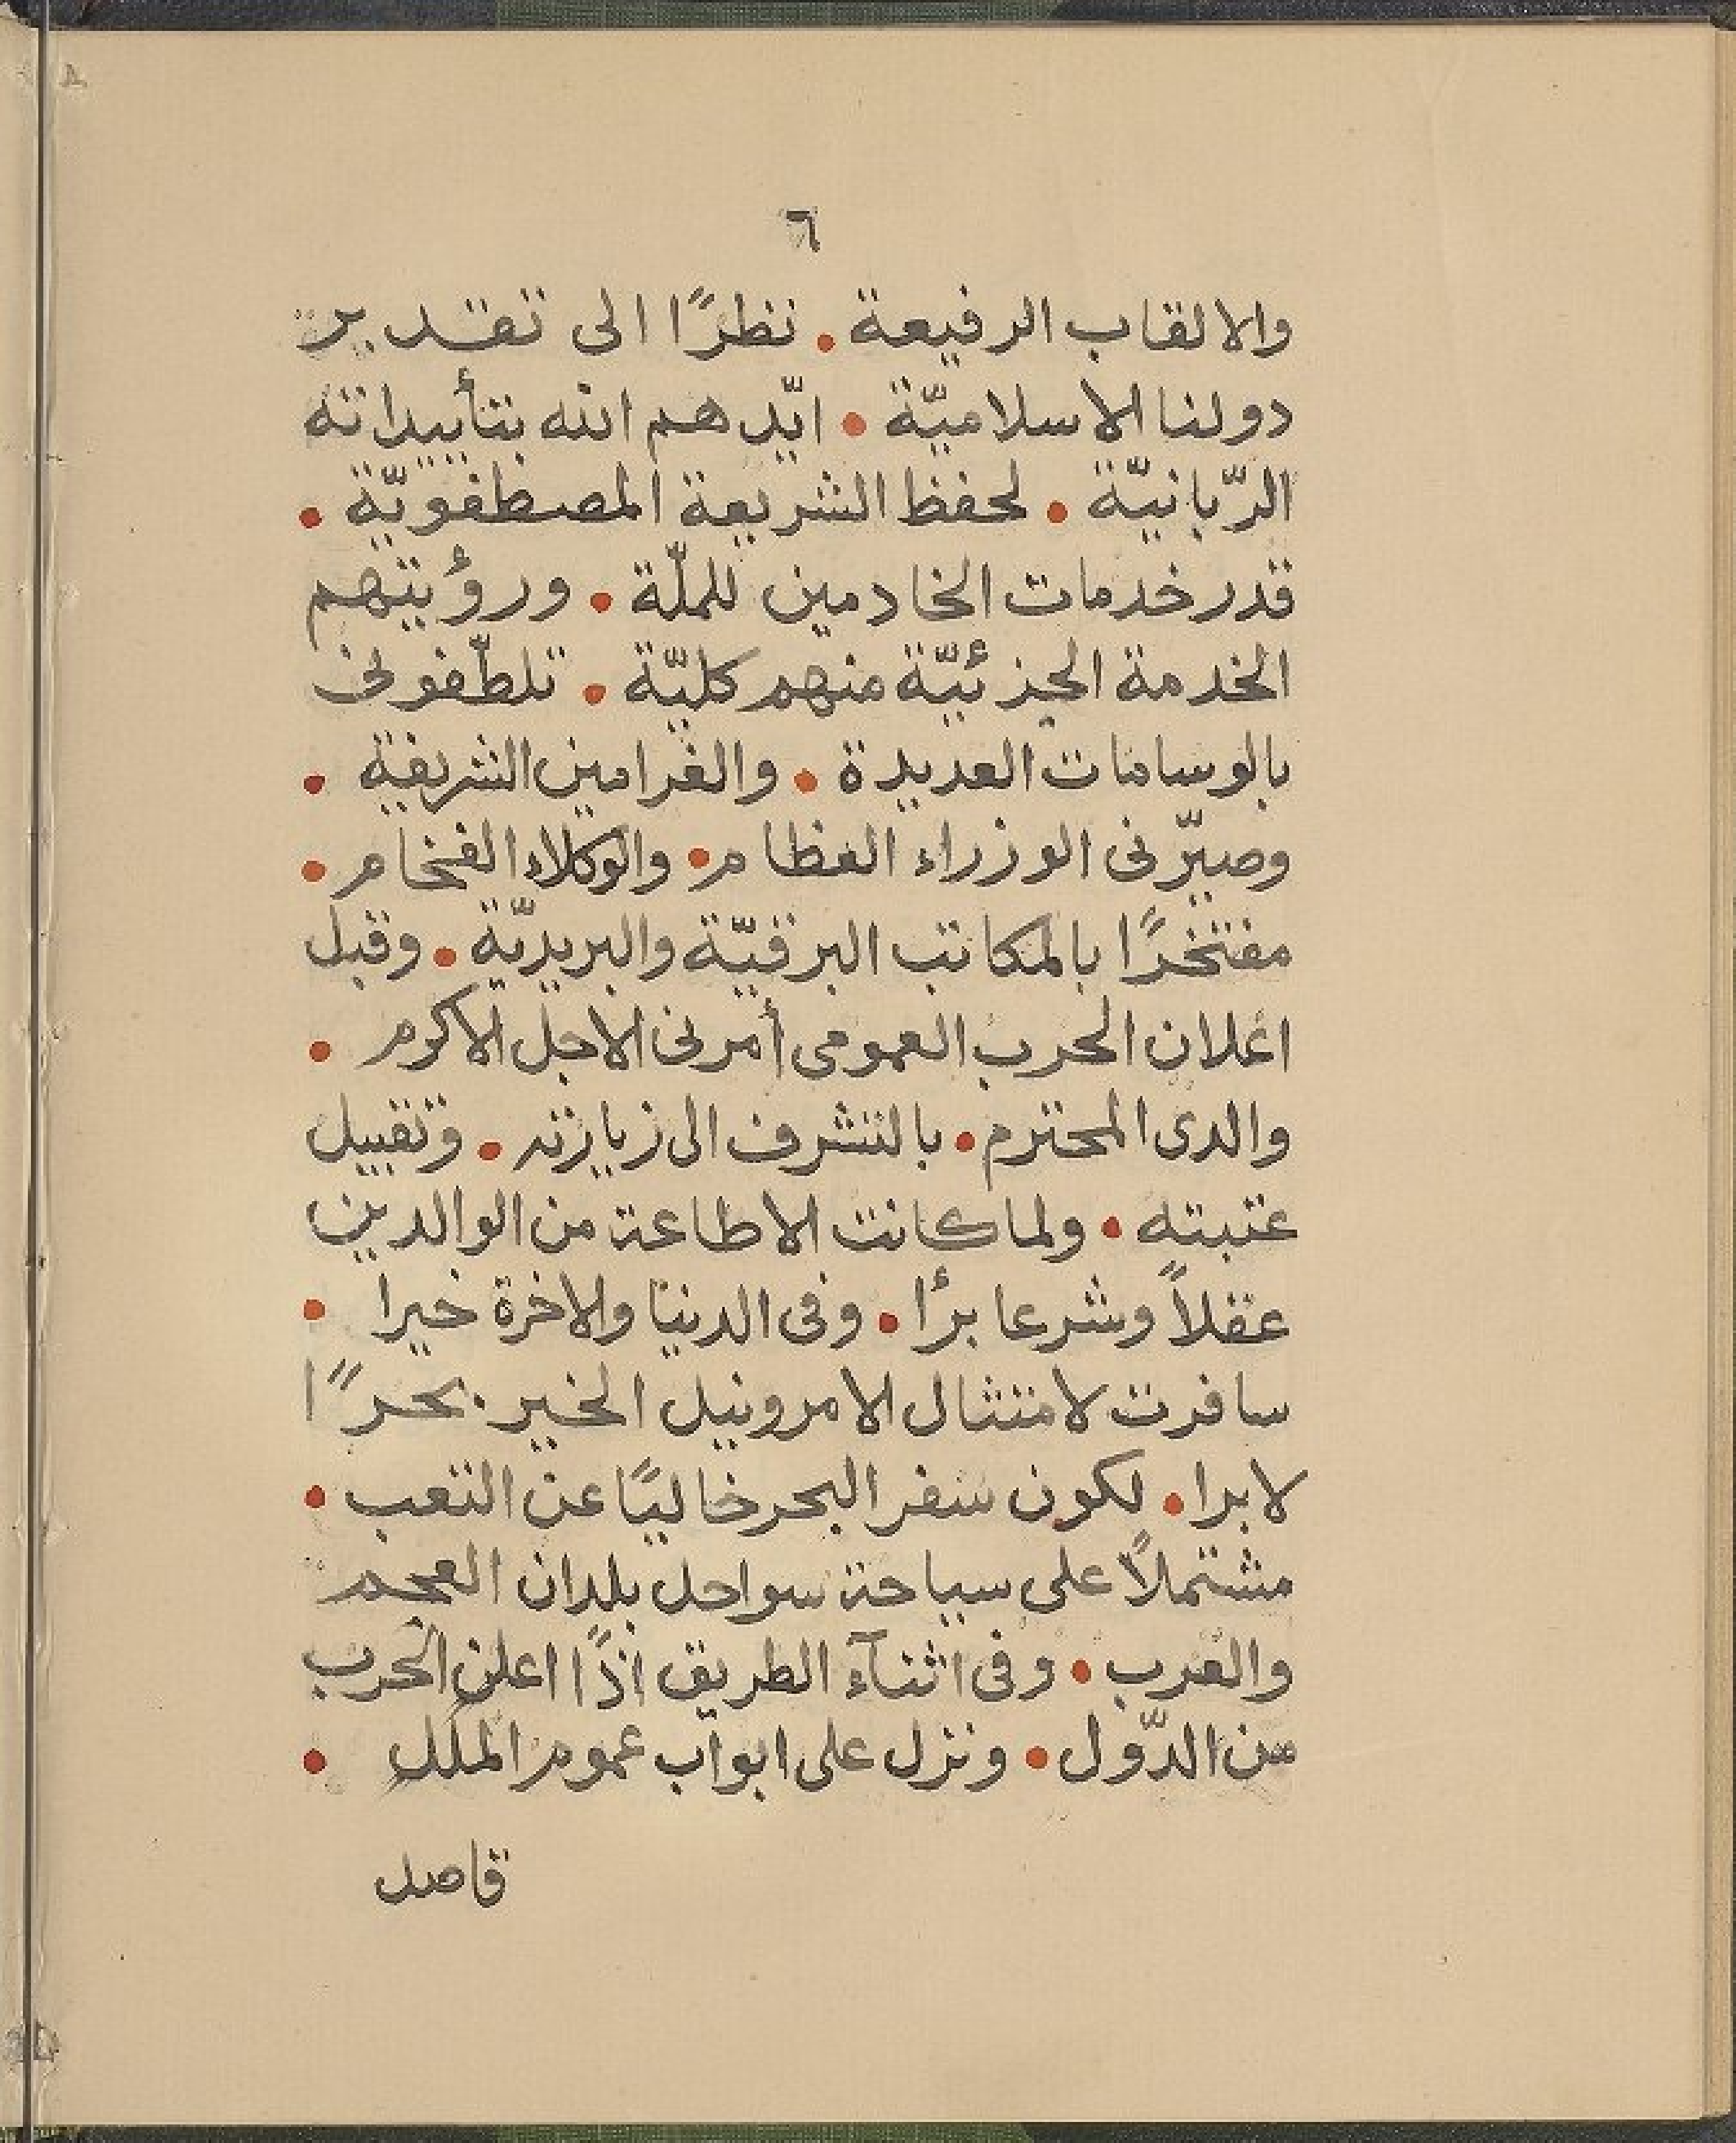 ٦
والالقاب الرفيعة • نظرًا الى تقدير
دولنا الاسلاميّة • ايّدهم الله بتأييداته
الرّبانيّة • لحفظ الشريعة المصطفويّة •
قدر خدمات الخادمين للملّة • ورؤيتهم
الخدمة الجزئيّة منهم كليّة • تلطّفونى
بالوسامات العديدة • والفرامين الشريفة •
وصيّرنى الوزراء العظام • والوكلاء الفخام •
مفتخرًا بالمكاتب البرقيّة والبريديّة • وقبل
اعلان الحرب العمومى أمرنى الاجل الاكرم •
والدى المحترم • بالتشرف الى زيارته • وتقبيل
عتبته • ولما كانت الاطاعة من الوالدين
عقلاً وشرعا برًا • وفى الدنيا والاخرة خيرا •
سافرت لامتثال الامر ونيل الخير • بحرًا
لا برا • لكون سفر البحر خاليًا عن التعب •
مشتملاً على سياحة سواحل بلدان العجم
والعرب • وفى اثنآء الطريق اذًا اعلن الحرب
من الدّول • ونزل على ابواب عموم الملل •
قاصل